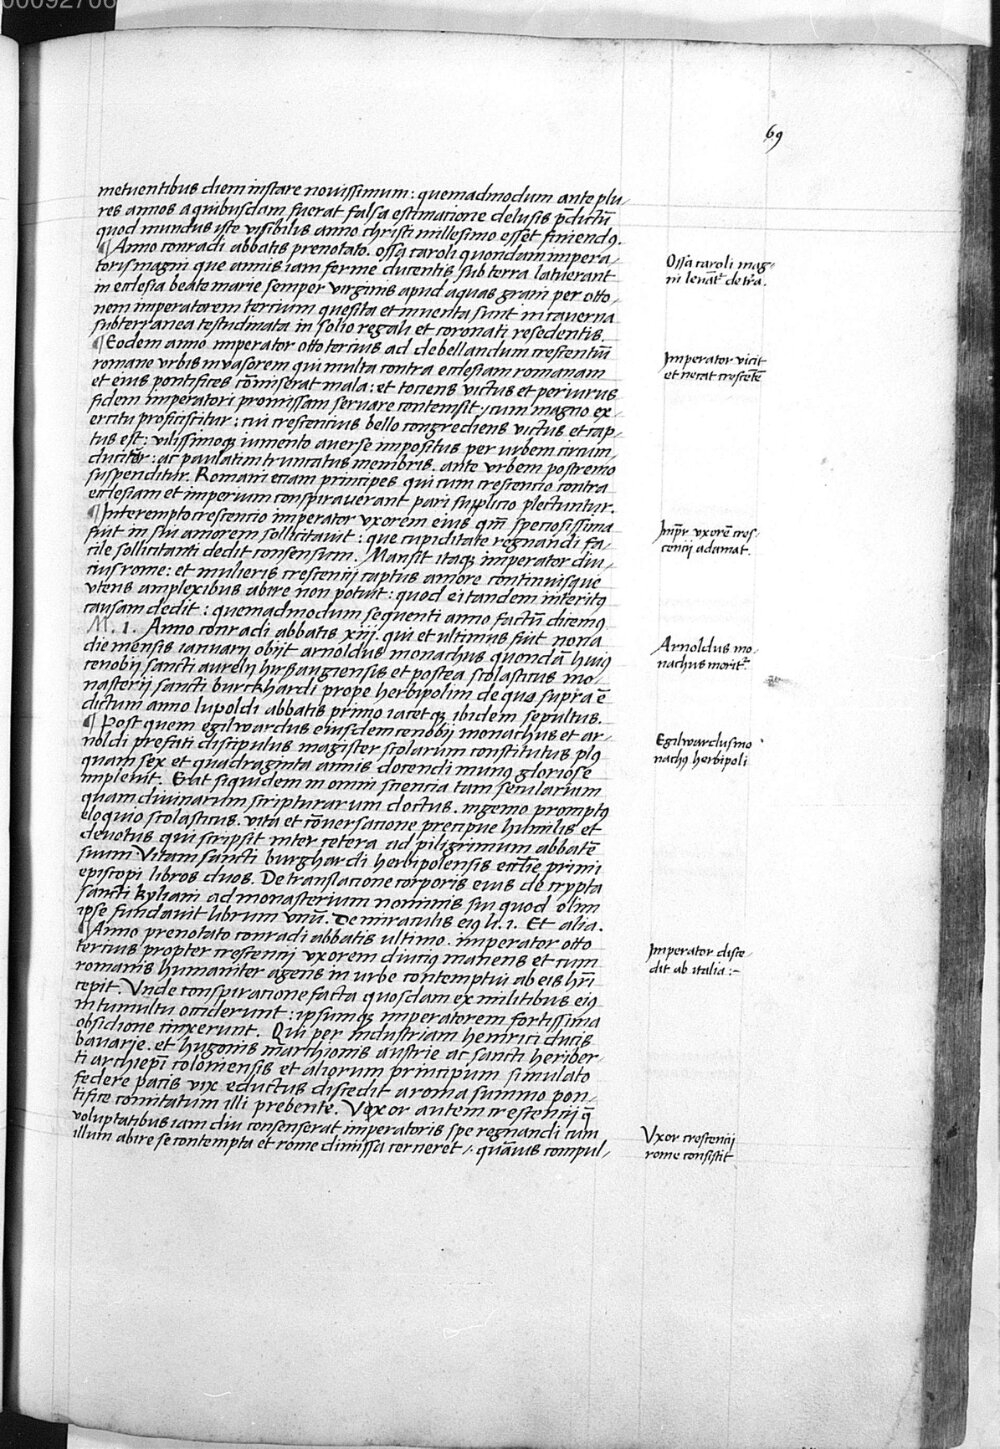 00092706
69
metuentibus diem instare nouissimum : quemadmodum ante plu-
res annos a quibusdam fuerat falsa estimatione delusis p̄dictū
quod mundus iste visibilis anno christi millesimo esset finiendꝰ.
¶ Anno conradi abbatis prenotato. ossa caroli quondam impera-
toris magni que annis iam ferme ducentis sub terra latuerant
in ecclesia beate marie semper virginis apud aquas grani per otto-
nem imperatorem tercium quesita et inuenta sunt in cauerna
subterranea testudinata in solio regali et coronati resedentis.
¶ Eodem anno imperator otto tercius ad debellandum crescentiū
romane vrbis inuasorem qui multa contra ecclesiam romanam
et eius pontifices cōmiserat mala : et tociens victus et periurus
fidem imperatori promissam seruare contemsit / cum magno ex-
ercitu proficiscitur : cui crescencius bello congrediens victus et cap-
tus est : vilissimoqȝ iumento auerse impositus per vrbem circum
ducitur : ac paulatim truncatus membris. ante vrbem postremo
suspenditur. Romani eciam principes qui cum crescencio contra
ecclesiam et imperium conspirauerant pari supplicio plectuntur.
¶ Interempto crescencio imperator vxorem eius qm̄ speciosissima
fuit in sui amorem sollicitauit : que cupiditate regnandi fa-
cile sollicitanti dedit consensum. Mansit itaqȝ imperator diu-
cius rome : et mulieris crescencij captus amore continuisque
vtens amplexibus abire non potuit : quod ei tandem interitꝰ
causam dedit : quemadmodum sequenti anno factū dicemꝰ
M. 1. Anno conradi abbatis xiij. qui et ultimus fuit nona
die mensis ianuarij obijt arnoldus monachus quondā huiꝰ
cenobij sancti aurelij hirsaugiensis et postea scolasticus mo-
nasterij sancti burckhardi prope herbipolim de quo supra ē
dictum anno lupoldi abbatis primo iacetqȝ ibidem sepultus.
¶ Post quem egilwardus eiusdem cenobij monachus et ar-
noldi prefati discipulus magister scolarum constitutus plꝰ
quam sex et quadraginta annis docendi munꝰ gloriose
impleuit. Erat siquidem in omni sciencia tam secularium
quam diuinarum scripturarum doctus. ingenio promptꝰ
eloquio scolasticus. vita et cōuersacione precipue humilis et
deuotus qui scripsit inter cetera ad piligrimum abbatē
suum Vitam sancti burghardi herbipolensis ecclīe primi
episcopi libros duos. De translacione corporis eius de crypta
sancti kyliani ad monasterium nominis sui quod olim
ipse fundauit librum vnū. De miraculis eiꝰ li. 1. Et alia.
¶ Anno prenotato conradi abbatis ultimo. imperator otto
tercius propter crescencij vxorem diucius manens et cum
romanis humaniter agens in urbe contemptui ab eis hr̄i
cepit. Vnde conspiracione facta quosdam ex militibus eiꝰ
in tumultu occiderunt : ipsumqȝ imperatorem fortissima
obsidione cinxerunt. Qui per industriam heinrici ducis
bauarie. et hugonis marchionis austrie ac sancti heriber-
ti archiep̄i coloniensis et aliorum principum simulato
federe pacis vix eductus discedit a roma summo pon-
tifice comitatum illi prebente. Vxor autem crescencij q̄
voluptatibus iam diu consenserat imperatoris spe regnandi cum
illum abire se contempta et rome dimissa cerneret / quāuis compul-
Ossa caroli mag-
ni leuāt᷑ de tr̄a.
Imperator vicit
et necat crescētē
Imp̄r vxorē cres-
cencij adamat.
Arnoldus mo-
nachus morit᷑
Egilwardus mo
nachꝰ herbipoli
Imperator disce-
dit ab italia :~
Vxor crescencij
rome consistit